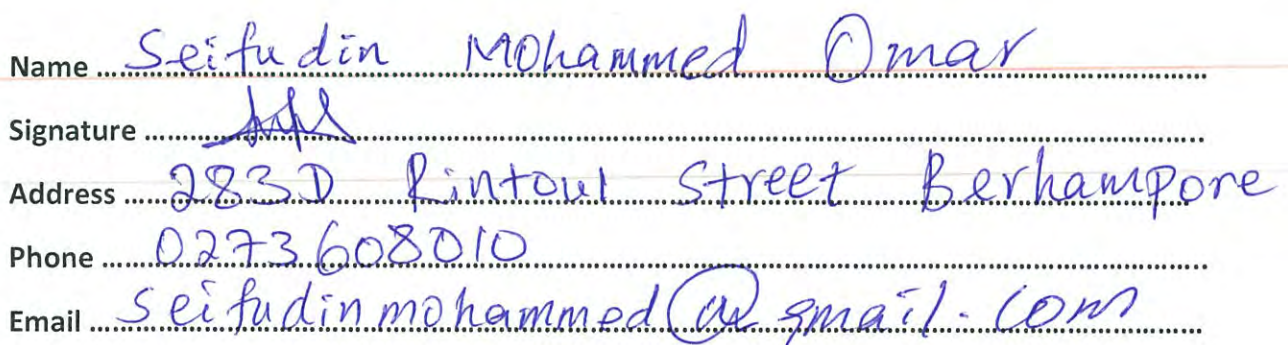 Name Seifudin Mohammed Omar
Signature
Address 283D Rintoul Street Berhampore
Phone 0273608010
Email seifudinmohammed@gmail.com